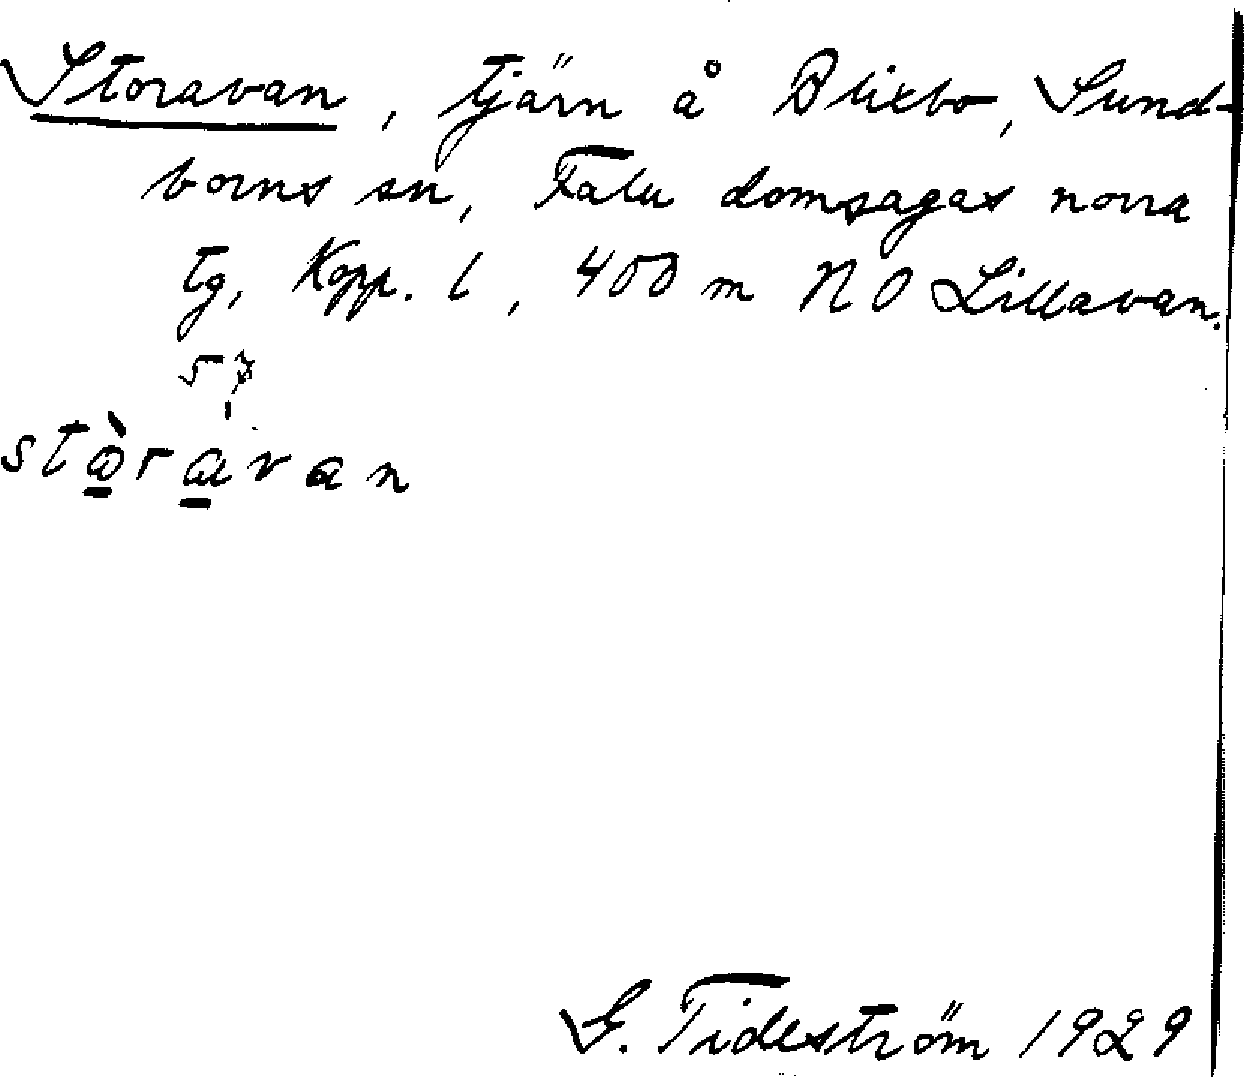 Storavan, tjärn å Blixbo, Sund-
borns sn, Falu domsagas norra
tg, Kopp. l, 400 m NO Lillavan.
57
G. Tideström 1929